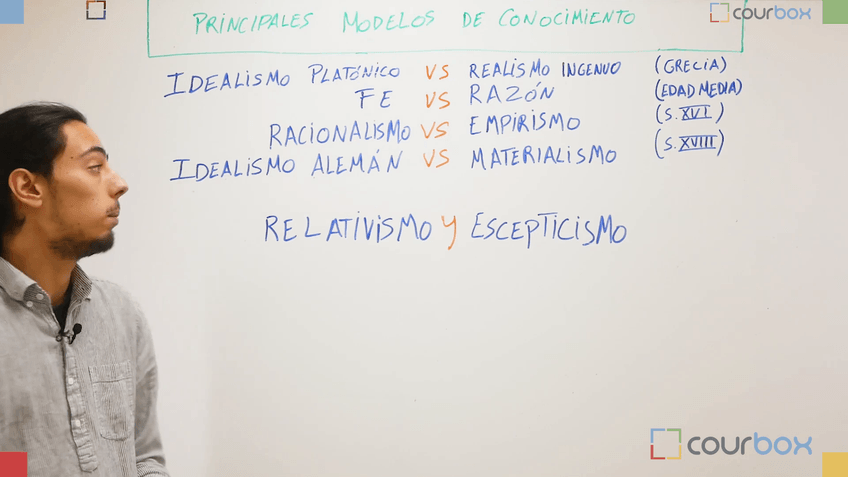 courbox
PRINCIPALES MODELOS DE CONOCIMIENTO
IDEALISMO PLATÓNICO VS REALISMO INGENUO (GRECIA)
FE VS RAZÓN (EDAD MEDIA)
RACIONALISMO VS EMPIRISMO (S. XVI)
IDEALISMO ALEMÁN VS MATERIALISMO (S. XVIII)
RELATIVISMO Y ESCEPTICISMO
courbox